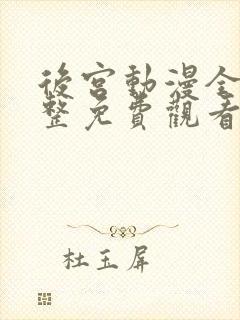 後宮動漫全
整免費觀看
杜玉屏